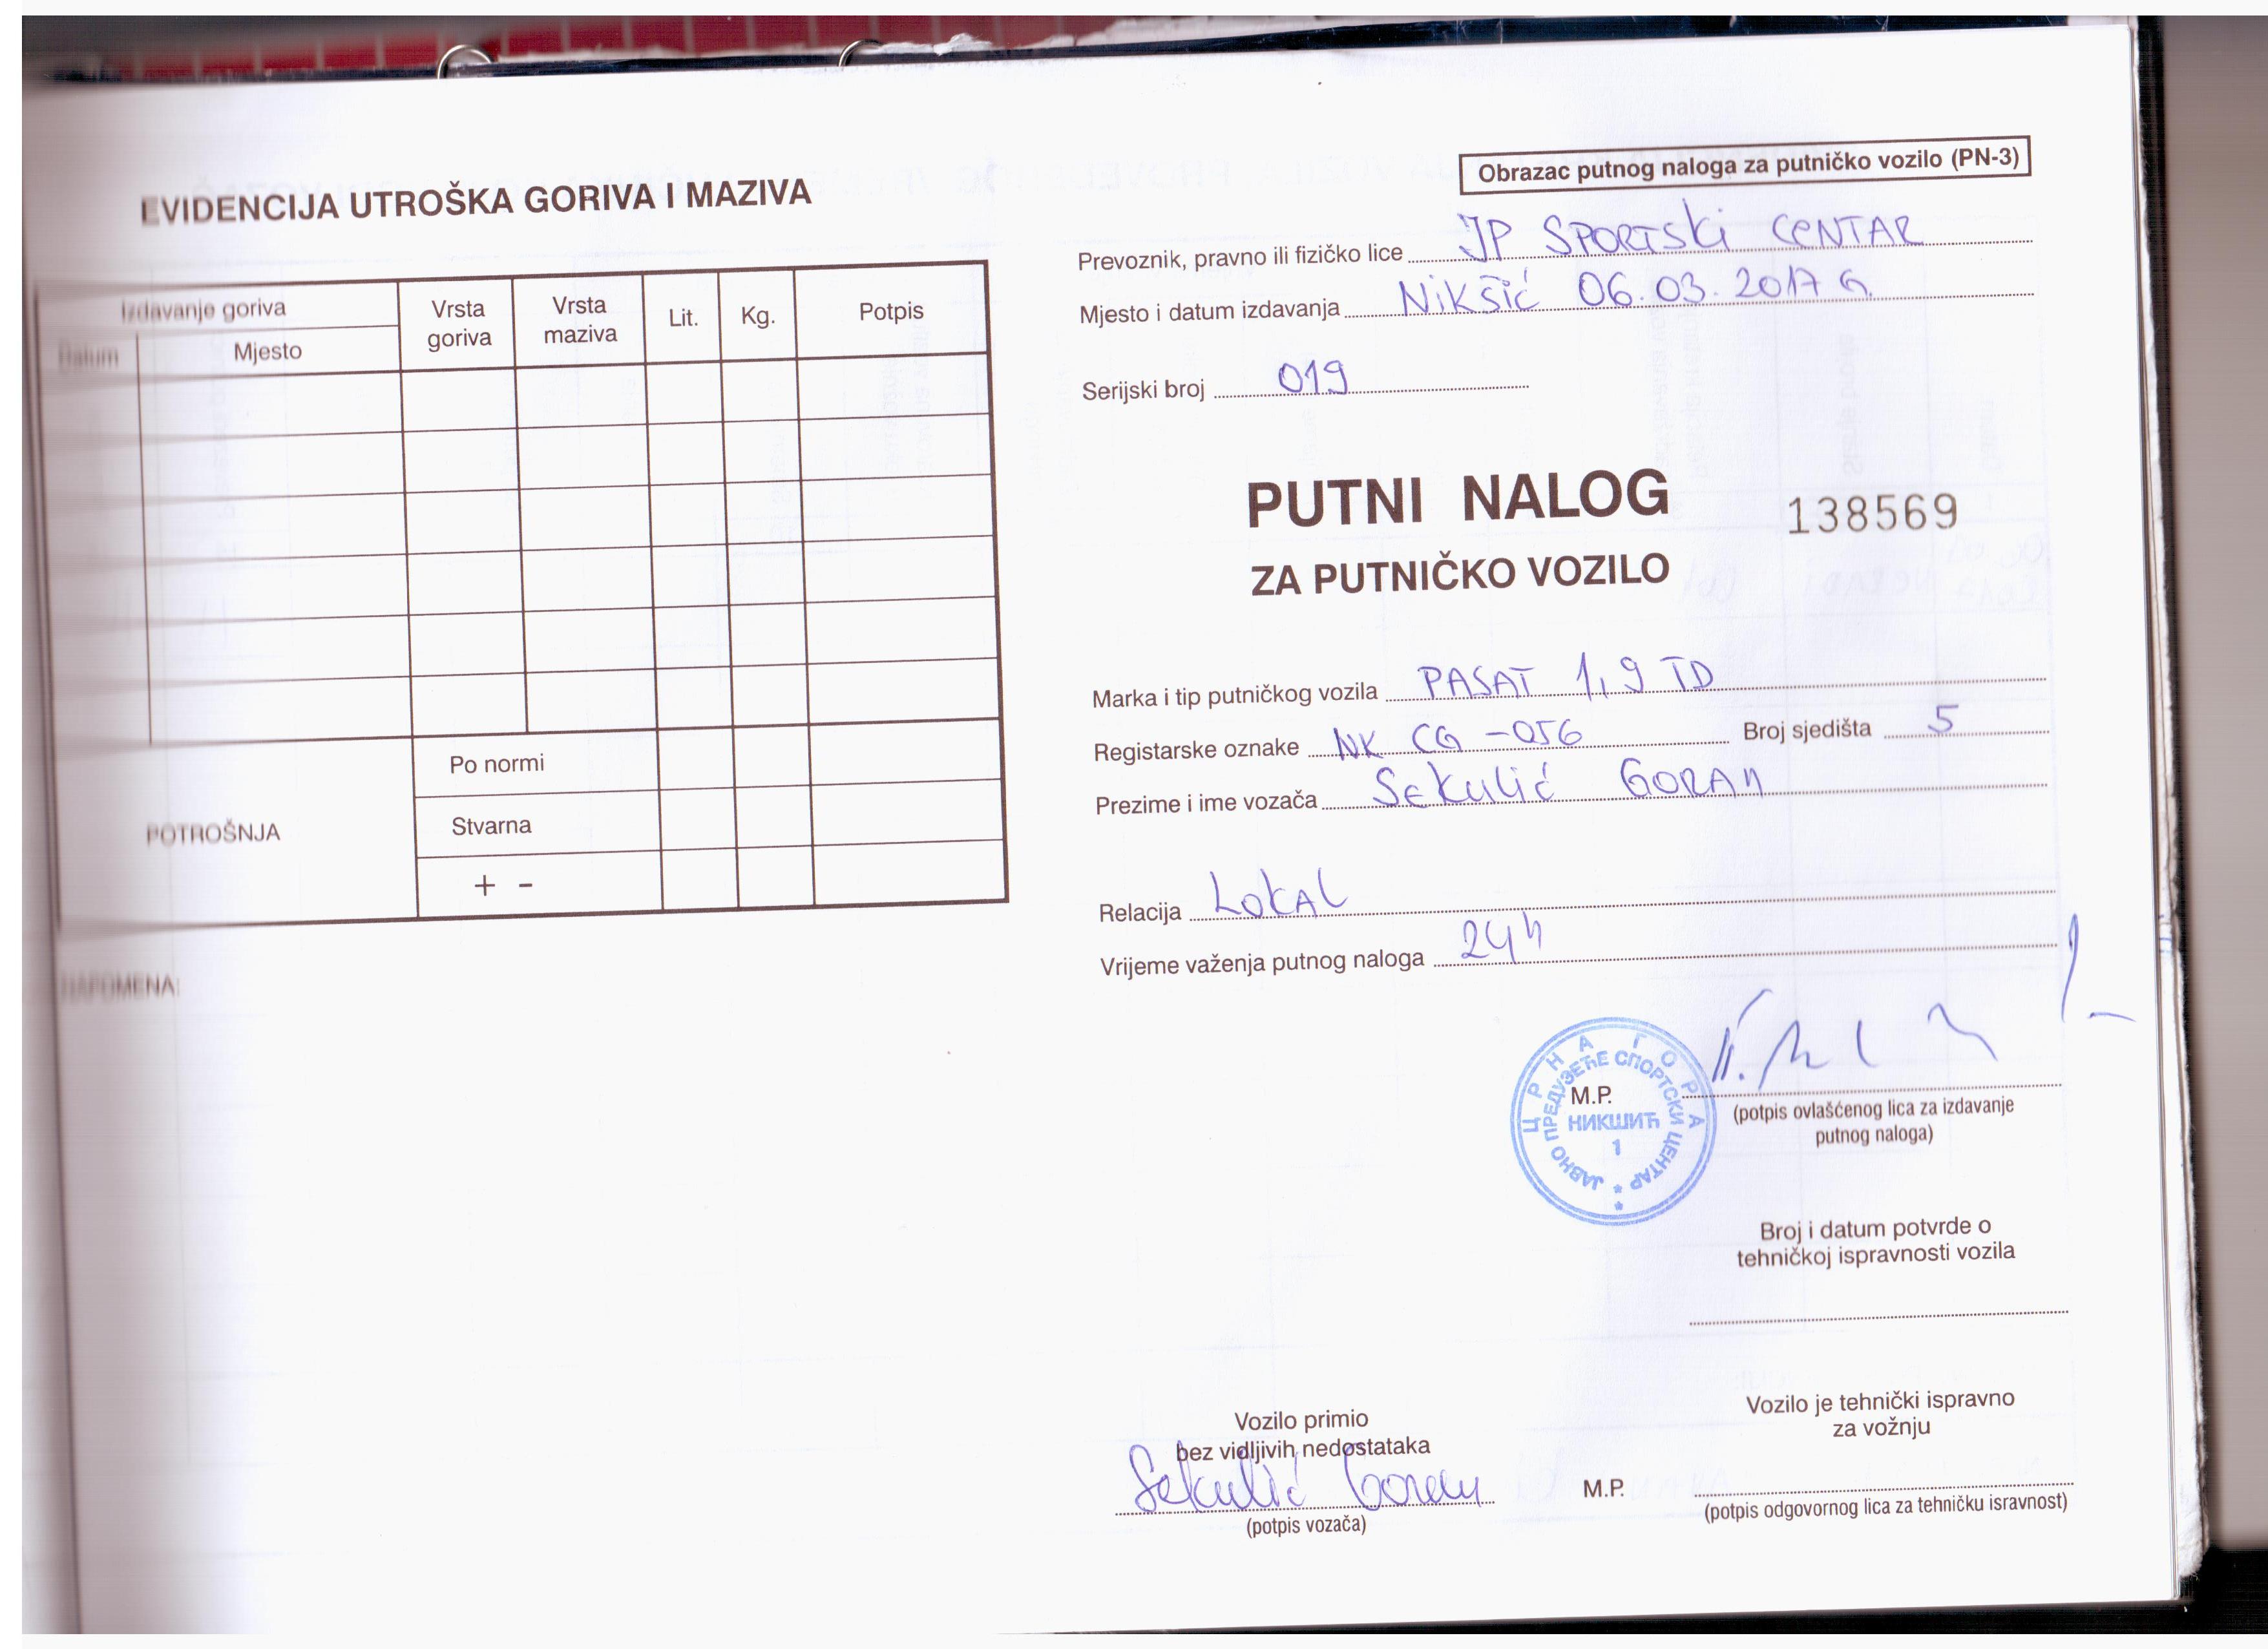 EVIDENCIJA UTROŠKA GORIVA I MAZIVA
Izdavanje goriva
Datum
Mjesto
Vrsta goriva
Vrsta maziva
Lit.
Kg.
Potpis
POTROŠNJA
Po normi
Stvarna
+ -
NAPOMENA:
Obrazac putnog naloga za putničko vozilo (PN-3)
Prevoznik, pravno ili fizičko lice JP SPORTSKI CENTAR
Mjesto i datum izdavanja Nikšić 06.03.2017 G.
Serijski broj 019
PUTNI NALOG
138569
ZA PUTNIČKO VOZILO
Marka i tip putničkog vozila PASAT 1,9 TD
Registarske oznake NK CG-056 Broj sjedišta 5
Prezime i ime vozača Sekulić GORAN
Relacija LOKAL
Vrijeme važenja putnog naloga 24h
ЦРНА ГОРА
ЈАВНО ПРЕДУЗЕЋЕ СПОРТСКИ ЦЕНТАР
М.P.
НИКШИЋ
1
(potpis ovlašćenog lica za izdavanje
putnog naloga)
Broj i datum potvrde o
tehničkoj ispravnosti vozila
Vozilo primio
bez vidljivih nedostataka
Sekulić Goran
(potpis vozača)
Vozilo je tehnički ispravno
za vožnju
M.P.
(potpis odgovornog lica za tehničku isravnost)